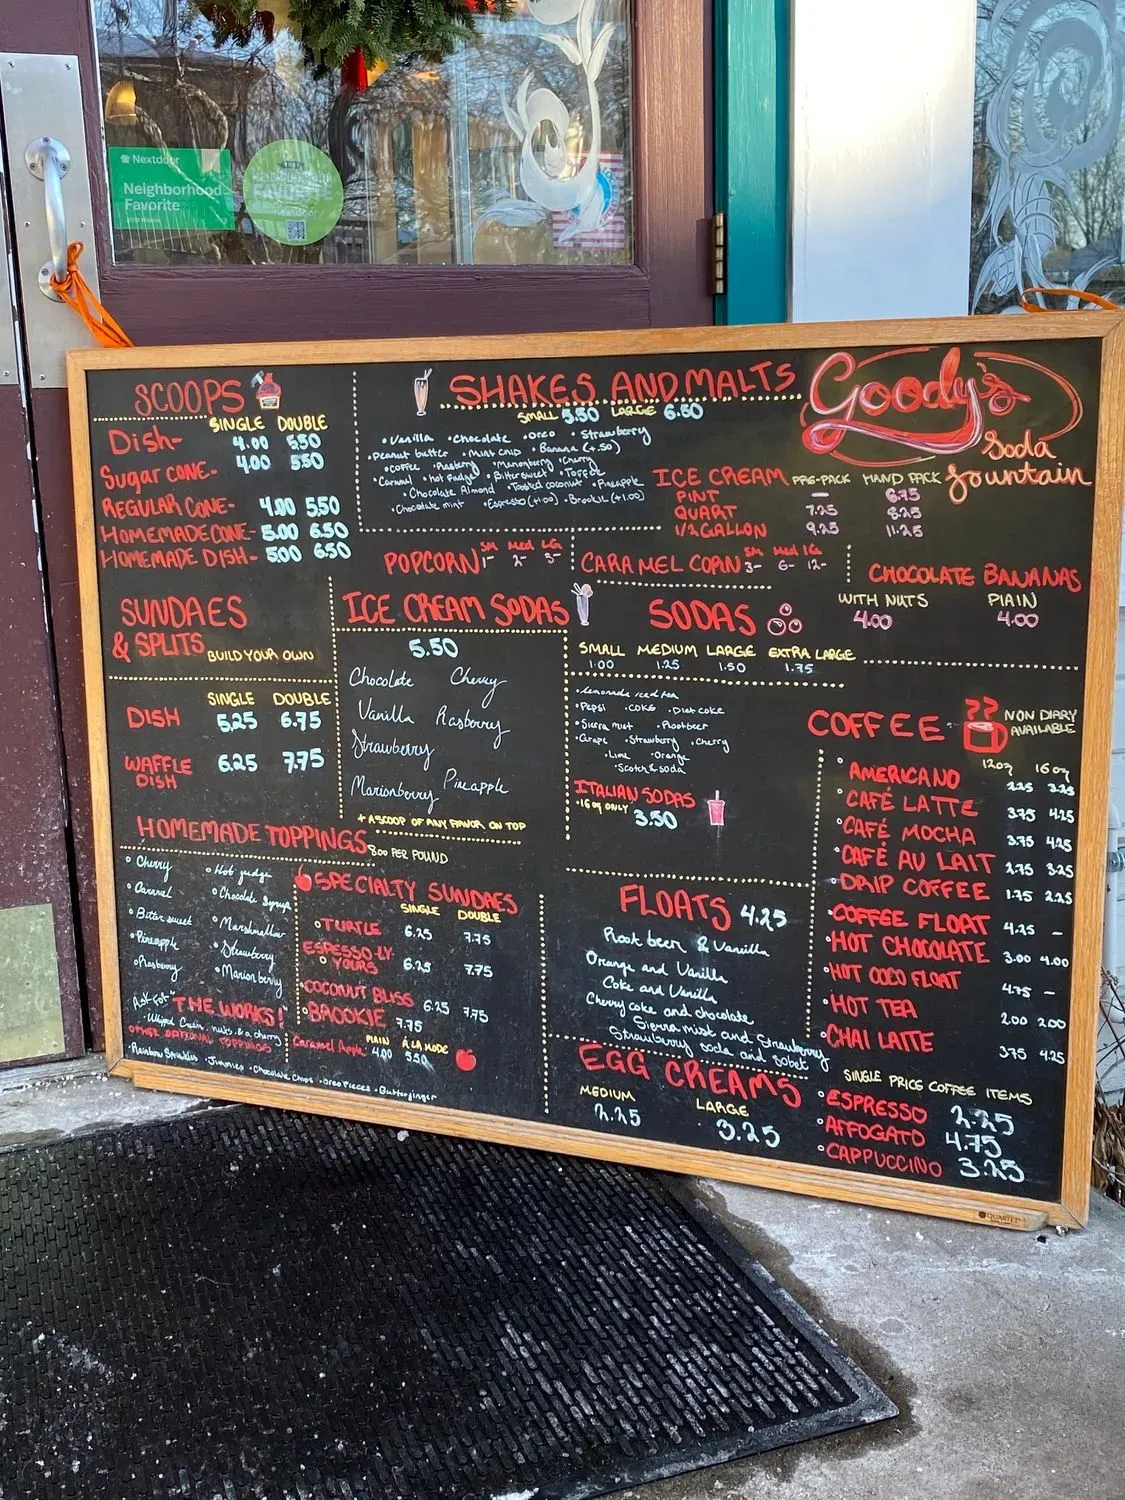 Nextdoor
Neighborhood
Favorite
FAVORITE
nextdoor
SCOOPS
SINGLE DOUBLE
Dish- 4.00 5.50
Sugar CONE- 4.00 5.50
REGULAR CONE- 4.00 5.50
HOMEMADE CONE- 5.00 6.50
HOMEMADE DISH- 5.00 6.50
SHAKES AND MALTS
SMALL 5.50 LARGE 6.50
•Vanilla •Chocolate •Oreo •Strawberry
•Peanut butter •Mint Chip •Banana (+.50)
•Coffee •Rasberry •Marionberry •Cherry
•Caramel •Hot fudge •Bittersweet •Toffee
•Chocolate Almond •Toasted coconut •Pineapple
•Chocolate mint •Espresso (+1.00) •Brookie (+1.00)
Goody's
Soda
fountain
ICE CREAM PRE-PACK HAND PACK
PINT — 6.75
QUART 7.25 8.25
1/2 GALLON 9.25 11.25
POPCORN SM 1- Med 2- LG 3-
CARAMEL CORN SM 3- Med 6- LG 12-
CHOCOLATE BANANAS
WITH NUTS PLAIN
4.00 4.00
SUNDAES
& SPLITS BUILD YOUR OWN
SINGLE DOUBLE
DISH 5.25 6.75
WAFFLE
DISH 6.25 7.75
ICE CREAM SODAS
5.50
Chocolate Cherry
Vanilla Rasberry
Strawberry
Marionberry Pineapple
+ A SCOOP OF ANY FLAVOR ON TOP
SODAS
SMALL MEDIUM LARGE EXTRA LARGE
1.00 1.25 1.50 1.75
•Lemonade iced tea
•Pepsi •COKE •Diet coke
•Sierra mist •Rootbeer
•Grape •Strawberry •Cherry
•Lime •Orange
•Scotch & soda
ITALIAN SODAS
•16 oz ONLY 3.50
COFFEE NON DIARY
AVAILABLE
12oz 16oz
•AMERICANO 2.25 3.25
•CAFÉ LATTE 3.75 4.25
•CAFÉ MOCHA 3.75 4.25
•CAFÉ AU LAIT 2.75 3.25
•DRIP COFFEE 1.75 2.25
•COFFEE FLOAT 4.25 —
•HOT CHOCOLATE 3.00 4.00
•HOT COCO FLOAT 4.75 —
•HOT TEA 2.00 2.00
•CHAI LATTE 3.75 4.25
SINGLE PRICE COFFEE ITEMS
•ESPRESSO 2.25
•AFFOGATO 4.75
•CAPPUCCINO 3.25
HOMEMADE TOPPINGS 8.00 PER POUND
•Cherry •Hot fudge
•Caramel •Chocolate Syrup
•Bittersweet •Marshmallow
•Pineapple •Strawberry
•Rasberry •Marionberry
Ask for "THE WORKS!
•Whipped Cream, nuts, & a cherry
OTHER OPTIONAL TOPPINGS
•Rainbow Sprinkles •Jimmies •Chocolate Chips •Oreo Pieces •Butterfinger
SPECIALTY SUNDAES
SINGLE DOUBLE
•TURTLE 6.25 7.75
ESPRESSO-LY
•YOURS 6.25 7.75
•COCONUT BLISS 6.25 7.75
•BROOKIE 7.75
Caramel Apple PLAIN 4.00 À LA MODE 5.50
FLOATS 4.25
Root beer & Vanilla
Orange and Vanilla
Coke and Vanilla
Cherry coke and chocolate
Sierra mist and Strawberry
Strawberry soda and sobet
EGG CREAMS
MEDIUM LARGE
2.25 3.25
QUARTET